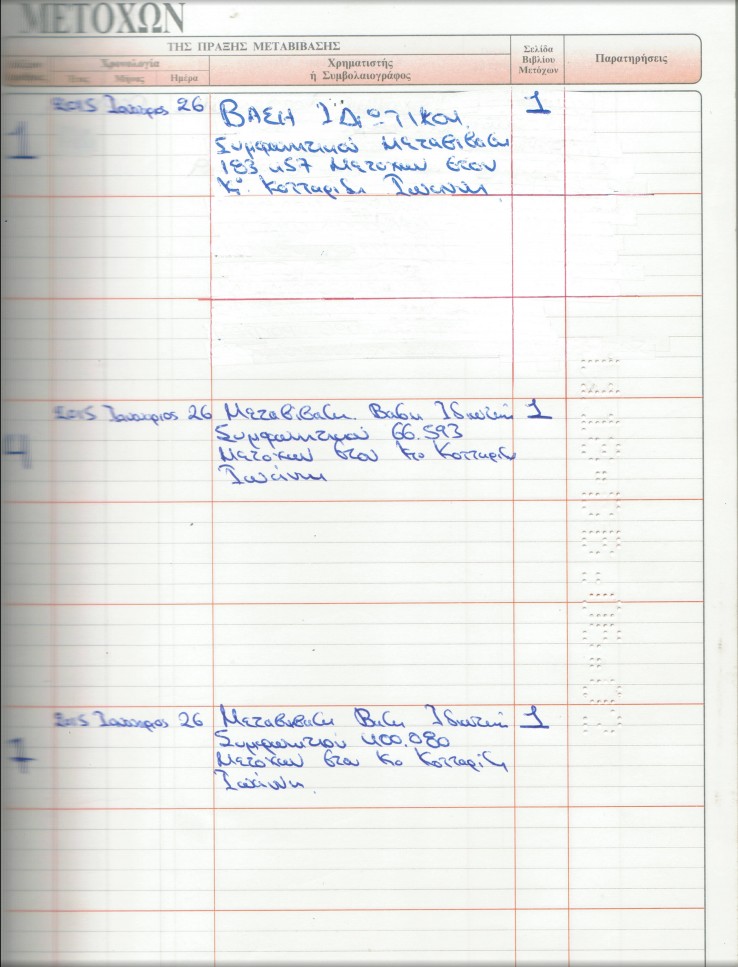 ΜΕΤΟΧΩΝ
ΤΗΣ ΠΡΑΞΗΣ ΜΕΤΑΒΙΒΑΣΗΣ
Χρονολογία
Έτος Μήνας Ημέρα
Χρηματιστής
ή Συμβολαιογράφος
Σελίδα
Βιβλίου
Μετόχων
Παρατηρήσεις
1 2015 Ιανουάριος 26 ΒΑΣΗ ΙΔΙΩΤΙΚΟΥ 1
Συμφωνητικού Μεταβίβαση
183 457 Μετοχών στον
Κο Κοτταρίδη Ιωάννη
4 2015 Ιανουάριος 26 Μεταβίβαση Βάση Ιδιωτικ 1
Συμφωνητικού 66.593
Μετοχών στον Κο Κοτταρίδ
Ιωάννη
7 2015 Ιανουάριος 26 Μεταβίβαση Βάση Ιδιωτικ 1
Συμφωνητικού 400.080
Μετοχών στον Κο Κοτταρίδη
Ιωάννη